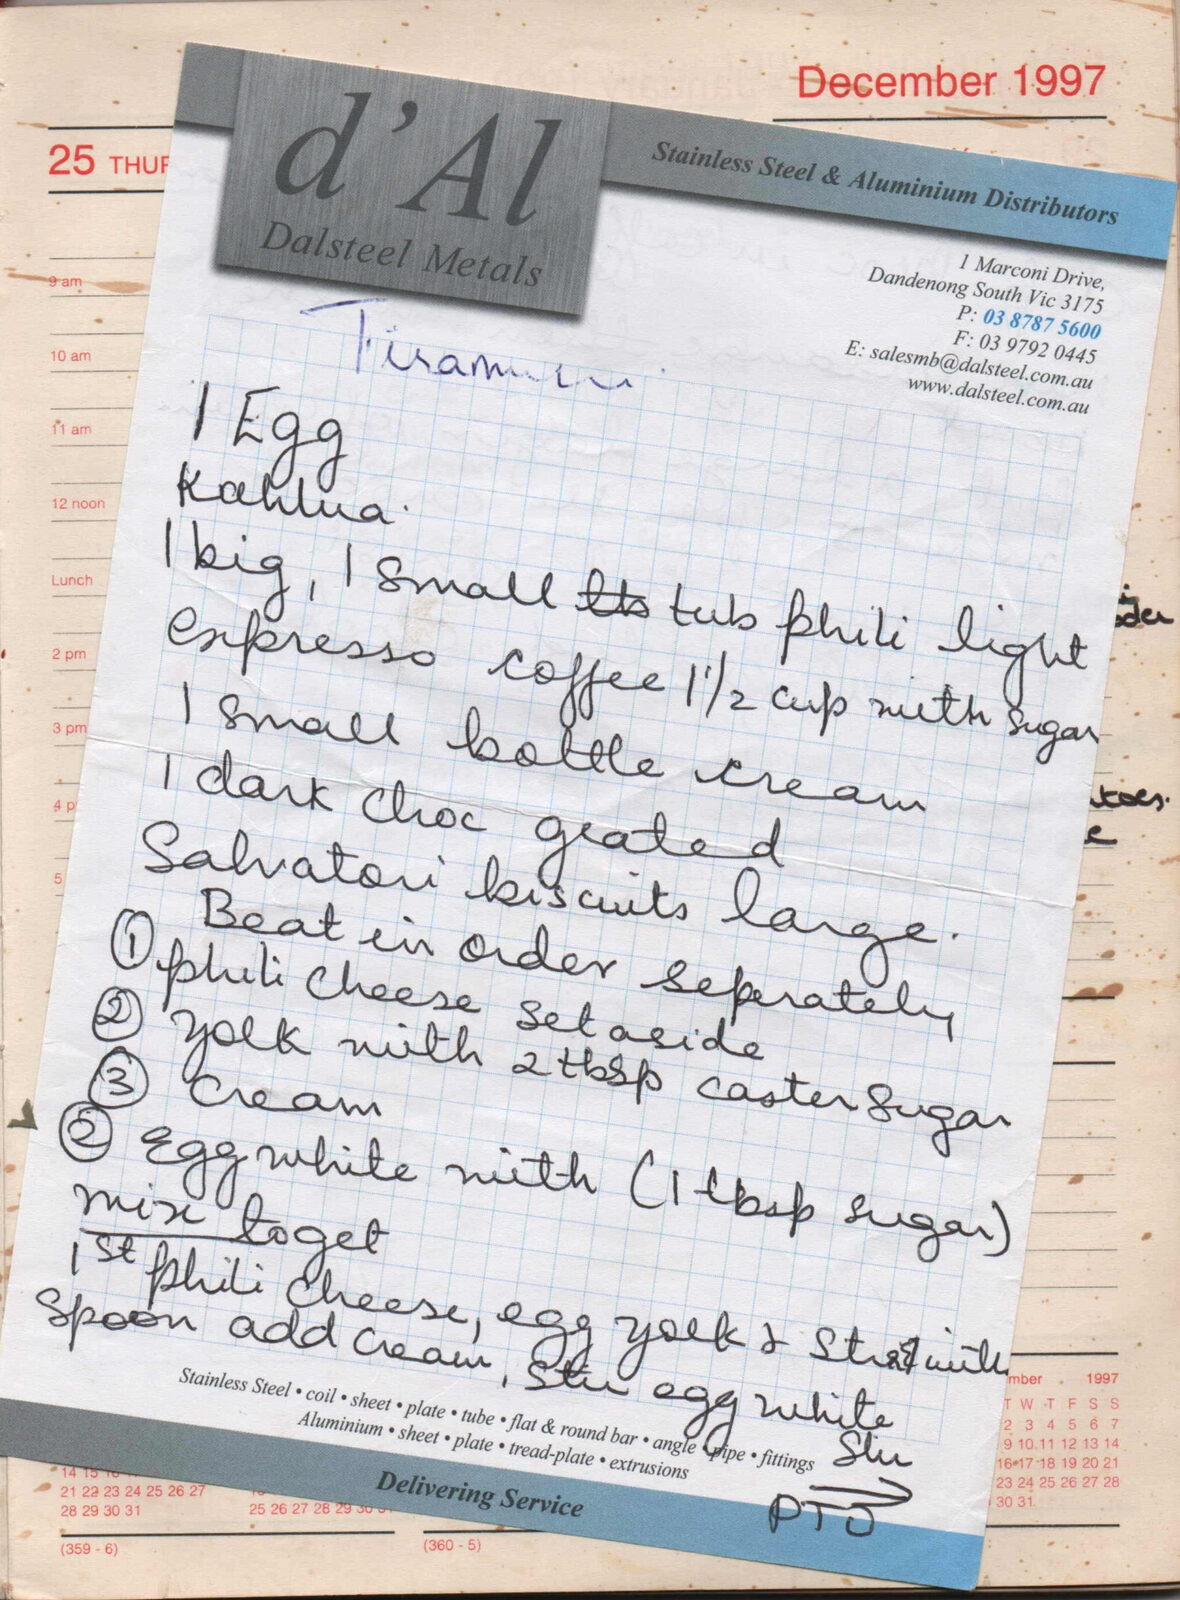 December 1997
25 THUR
9 am
10 am
11 am
12 noon
Lunch
2 pm
3 pm
4 p
5
d'Al
Dalsteel Metals
Stainless Steel & Aluminium Distributors
1 Marconi Drive,
Dandenong South Vic 3175
P: 03 8787 5600
F: 03 9792 0445
E: salesmb@dalsteel.com.au
www.dalsteel.com.au
1 Egg
Kahlua.
1 big, 1 small tub phili light
espresso coffee 1 1/2 cup with sugar
1 small bottle cream
1 dark choc grated
Salvatori biscuits large.
Beat in order seperately
① phili cheese set aside
② yolk with 2 tbsp caster sugar
③ cream
② Egg white with (1 tbsp sugar)
mix toget
1st phili cheese, egg yolk & stir with
spoon add cream, stir egg white
stir
PTO
Stainless Steel • coil • sheet • plate • tube • flat & round bar • angle • pipe • fittings
Aluminium • sheet • plate • tread-plate • extrusions
Delivering Service
mber 1997
T W T F S S
2 3 4 5 6 7
9 10 11 12 13 14
16 17 18 19 20 21
23 24 25 26 27 28
30 31
14 15 16
21 22 23 24 25 26 27
28 29 30 31
25 26 27 28 29 30 31
(359 - 6)
(360 - 5)